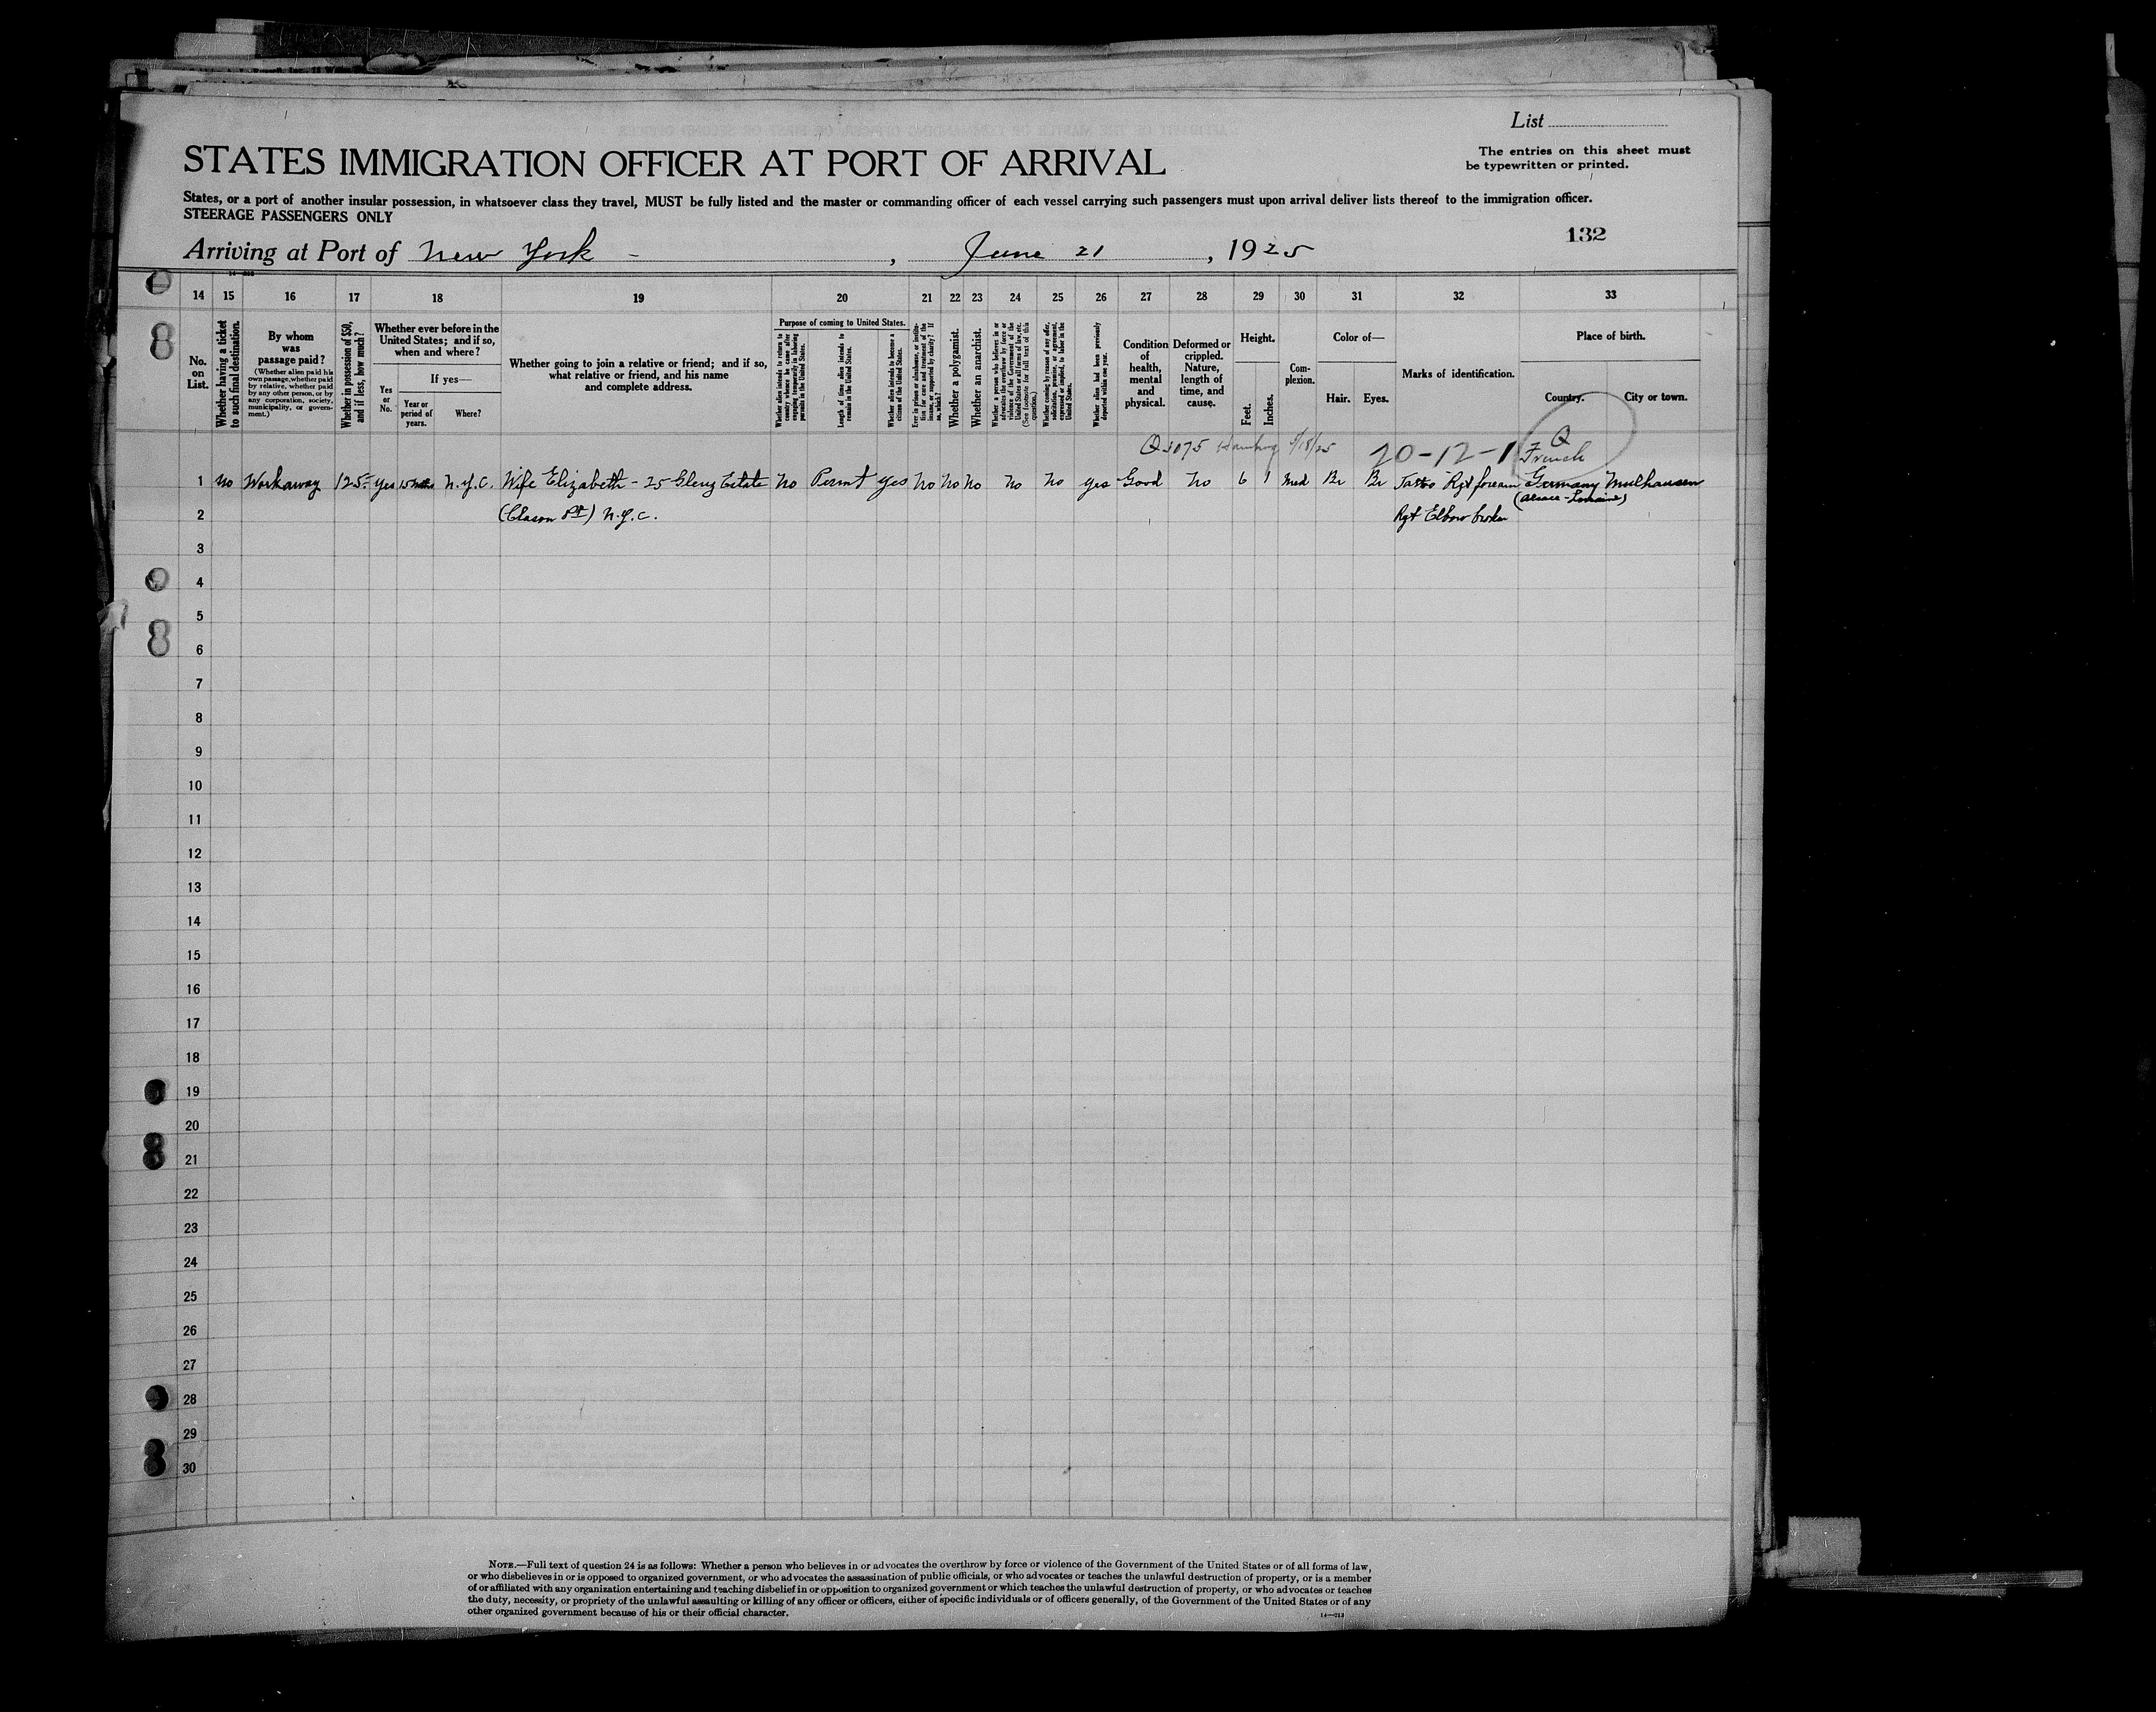 List
STATES IMMIGRATION OFFICER AT PORT OF ARRIVAL
The entries on this sheet must
be typewritten or printed.
States, or a port of another insular possession, in whatsoever class they travel, MUST be fully listed and the master or commanding officer of each vessel carrying such passengers must upon arrival deliver lists thereof to the immigration officer.
STEERAGE PASSENGERS ONLY
132
Arriving at Port of New York - , June 21 , 1925
14 15 16 17 18 19 20 21 22 23 24 25 26 27 28 29 30 31 32 33
No. on List.
Whether having a ticket to such final destination.
By whom was passage paid?
(Whether alien paid his own passage, whether paid by relative, whether paid by any other person, or by any corporation, society, municipality, or government.)
Whether in possession of $50, and if less, how much?
Whether ever before in the United States; and if so, when and where?
Yes or No.
If yes—
Year or period of years.
Where?
Whether going to join a relative or friend; and if so, what relative or friend, and his name and complete address.
Purpose of coming to United States.
Whether alien intends to return to country whence he came after engaging temporarily in laboring pursuits in the United States.
Length of time alien intends to remain in the United States.
Whether alien intends to become a citizen of the United States.
Ever in prison or almshouse, or institution for care and treatment of the insane, or supported by charity? If so, which?
Whether a polygamist.
Whether an anarchist.
Whether a person who believes in or advocates the overthrow by force or violence of the Government of the United States or all forms of law, etc. (See footnote for full text of this question.)
Whether coming by reason of any offer, solicitation, promise, or agreement, expressed or implied, to labor in the United States.
Whether alien had been previously deported within one year.
Condition of health, mental and physical.
Deformed or crippled. Nature, length of time, and cause.
Height.
Feet.
Inches.
Complexion.
Color of—
Hair. Eyes.
Marks of identification.
Place of birth.
Country. City or town.
Hamburg 20-12-1 Q
French
1 no Workaway 125 yes N.Y.C. Wife Elizabeth - 25 Estate no Permt yes No No No No No yes Good No 6 1 Med Br Br Rgt foream Germany Mulhausen
(Alsace-Lorraine)
2 (Clason Pt) N.Y.C. Rgt Elbow broken
3
4
5
6
7
8
9
10
11
12
13
14
15
16
17
18
19
20
21
22
23
24
25
26
27
28
29
30
NOTE.—Full text of question 24 is as follows: Whether a person who believes in or advocates the overthrow by force or violence of the Government of the United States or of all forms of law,
or who disbelieves in or is opposed to organized government, or who advocates the assassination of public officials, or who advocates or teaches the unlawful destruction of property, or is a member
of or affiliated with any organization entertaining and teaching disbelief in or opposition to organized government or which teaches the unlawful destruction of property, or who advocates or teaches
the duty, necessity, or propriety of the unlawful assaulting or killing of any officer or officers, either of specific individuals or of officers generally, of the Government of the United States or of any
other organized government because of his or their official character.